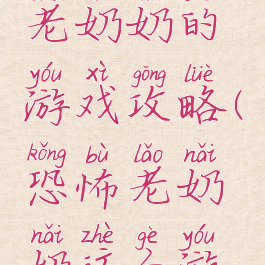 老奶奶的
yóu xì gōng lüè
游戏攻略(
kǒng bù lǎo nǎi
恐怖老奶
nǎi zhè gè yóu
奶这个游